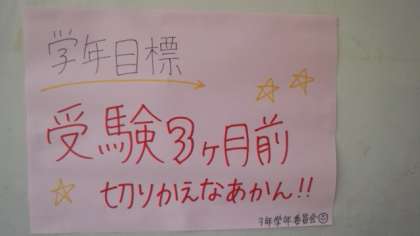 学年目標
受験3ヶ月前
切りかえなあかん!!
3年学年委員会